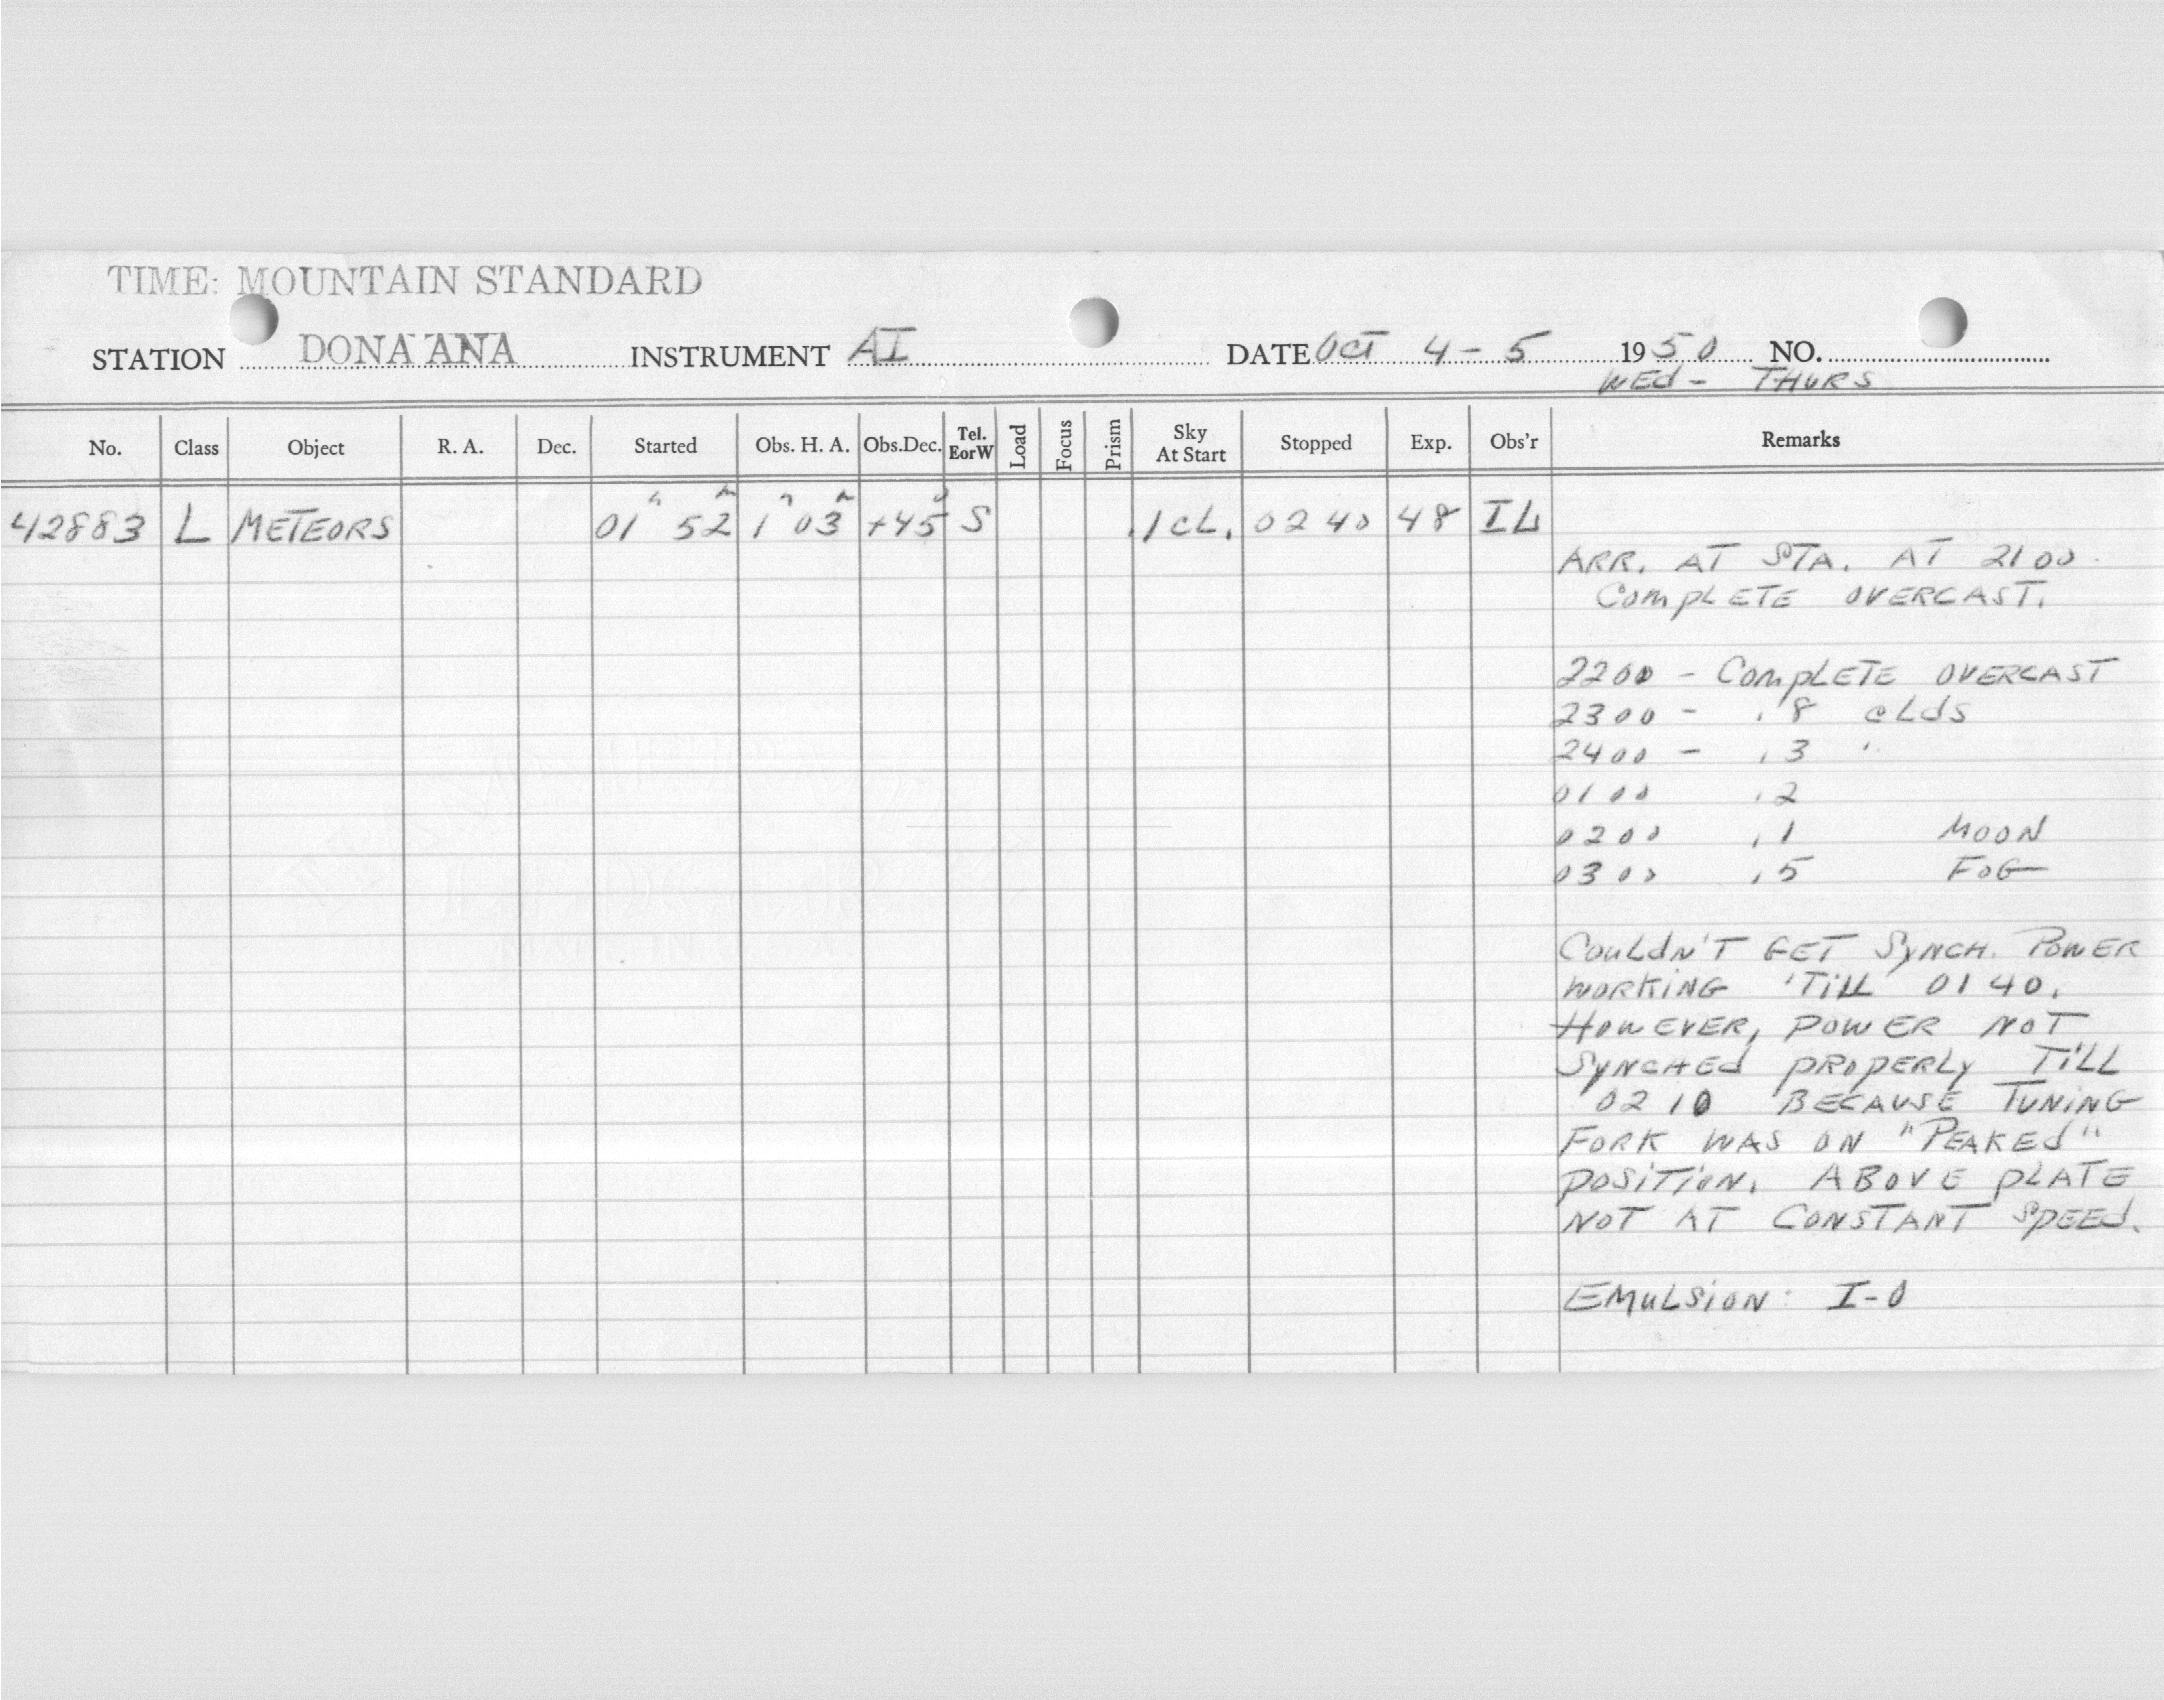 TIME: MOUNTAIN STANDARD
STATION DONA ANA INSTRUMENT AI DATE OCT 4-5 1950 NO.
WEd - THURS
No. Class Object R. A. Dec. Started Obs. H. A. Obs.Dec. Tel. EorW Load Focus Prism Sky At Start Stopped Exp. Obs'r Remarks
42883 L METEORS 01h 52m 1h 03m +45° S .1 CL. 0240 48 IL
ARR. AT STA. AT 2100.
COMPLETE OVERCAST.
2200 - COMPLETE OVERCAST
2300 - .8 CLdS
2400 - .3 "
0100 .2
0200 .1 MOON
0300 .5 FOG
COULdN'T GET SYNCH. POWER
WORKING 'TILL 0140.
HOWEVER, POWER NOT
SYNCHEd PROPERLY TILL
0210 BECAUSE TUNING
FORK WAS ON "PEAKEd"
POSITION. ABOVE PLATE
NOT AT CONSTANT SPEEd.
EMULSION: I-O